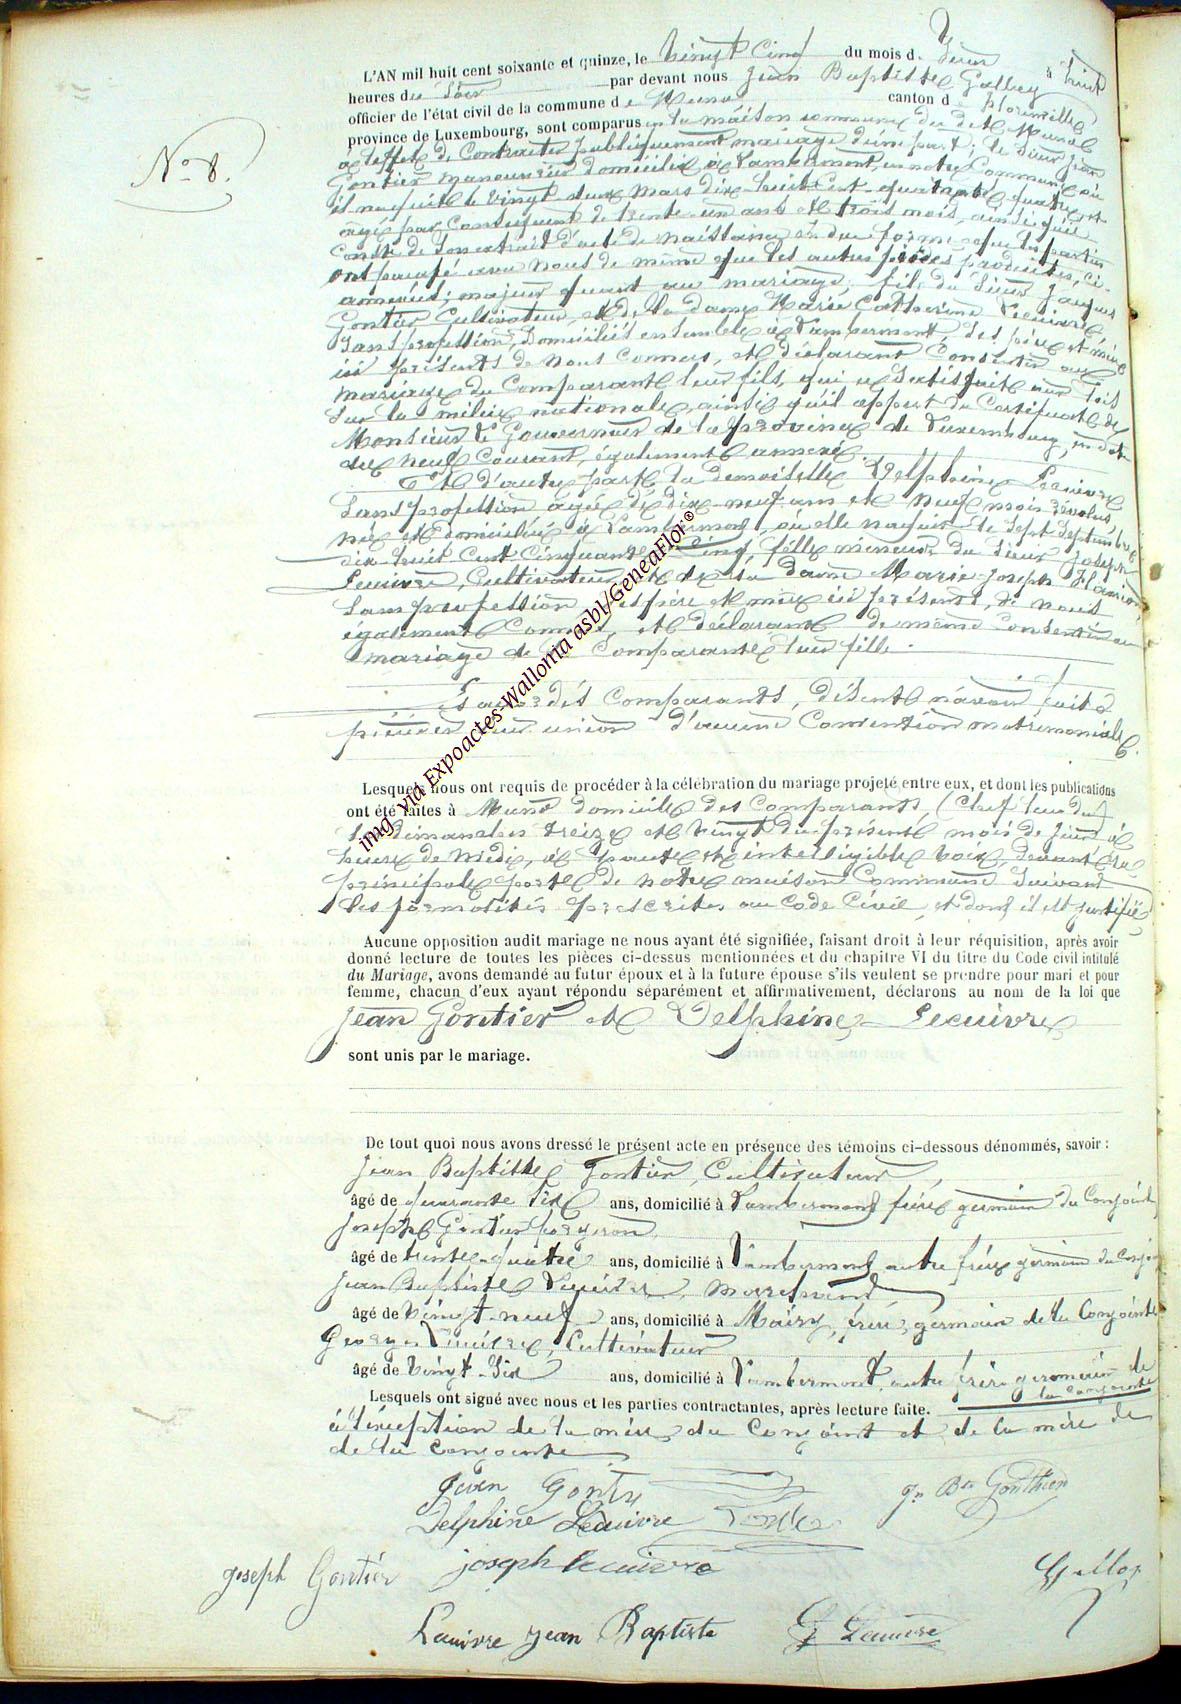 L'AN mil huit cent soixante et quinze, le Vingt Cinq du mois d. Juin à huit
heures du Soir par devant nous Jean Baptiste
officier de l'état civil de la commune de Muno canton de Florenville
province de Luxembourg, sont comparus en la maison commune du dit Muno
N° 8.
à l'effet de Contracter publiquement mariage d'une part. le Sieur Jean
Gontier manouvrier domicilié à Lambermont, en notre Commune où
il naquit le Vingt deux Mars dix-huit-Cent-quarante quatre et
agé par Conséquent de trente-un ans et trois mois, ainsi qu'il
Conste de Son extrait d'acte de naissance en due forme que les parties
ont paraphé avec Nous de même que les autres pièces produites, ci-
annexées; majeur quant au mariage, fils du Sieur Jacques
Gontier Cultivateur, et de la dame Marie Catherine Lecuivre
Sans profession, Domiciliés ensemble à Lambermont, Ses père et mère
ici présents de Nous Connus, et déclarant Consentir au
mariage du Comparant leur fils, qui a Satisfait aux lois
Sur la milice nationale, ainsi qu'il appert du Certificat de
Monsieur le Gouverneur de la province de Luxembourg, en date
du Neuf Courant, également annexé
Et d'autre part la demoiselle Delphine Lecuivre
Sans profession agée de dix-neuf ans et Neuf mois révolus,
née et domiciliée à Lambermont, où elle naquit le Sept Septembre
dix-huit Cent Cinquante Cinq, fille mineure du Sieur Joseph
Lecuivre, Cultivateur, et de la dame Marie-Joseph
Sans profession, Ses père et mère ici présents, de nous
également Connus, et déclarant de même Consentir au
mariage de la Comparante leur fille.
Lesdits Comparants, disent n'avoir fait
précéder leur union d'aucune Convention matrimoniale.
Lesquels nous ont requis de procéder à la célébration du mariage projeté entre eux, et dont les publications
ont été faites à Muno domicile des Comparants, (Chef lieu du)
les dimanches treize et vingt du présent mois de Juin à
heure de Midi, à haute et intelligible voix, devant la
principale porte de notre maison Commune Suivant
les formalités prescrites au Code Civil, et dont il est justifié
Aucune opposition audit mariage ne nous ayant été signifiée, faisant droit à leur réquisition, après avoir
donné lecture de toutes les pièces ci-dessus mentionnées et du chapitre VI du titre du Code civil intitulé
du Mariage, avons demandé au futur époux et à la future épouse s'ils veulent se prendre pour mari et pour
femme, chacun d'eux ayant répondu séparément et affirmativement, déclarons au nom de la loi que
Jean Gontier et Delphine Lecuivre
sont unis par le mariage.
De tout quoi nous avons dressé le présent acte en présence des témoins ci-dessous dénommés, savoir :
Jean Baptiste Gontier, Cultivateur,
âgé de quarante Six ans, domicilié à Lambermont frère germain du Conjoint,
Joseph Gontier
âgé de trente-quatre ans, domicilié à Lambermont autre frère germain du Conjoint
Jean Baptiste Lecuivre, Marchand
âgé de Vingt-neuf ans, domicilié à Mairy, frère germain de la Conjointe
Georges Lecuivre, Cultivateur
âgé de Vingt-Six ans, domicilié à Lambermont, autre frère germain de
la Conjointe
Lesquels ont signé avec nous et les parties contractantes, après lecture faite.
à l'exception de la mère du Conjoint et de la mère de
de la Conjointe
Jean Gontier
Jn Bte Gonthier
Delphine Lecuivre
Joseph Gontier
joseph lecuivre
Lecuivre Jean Baptiste
G Lecuivre
img via Expoactes-Wallonia asbl/GeneaFlor®